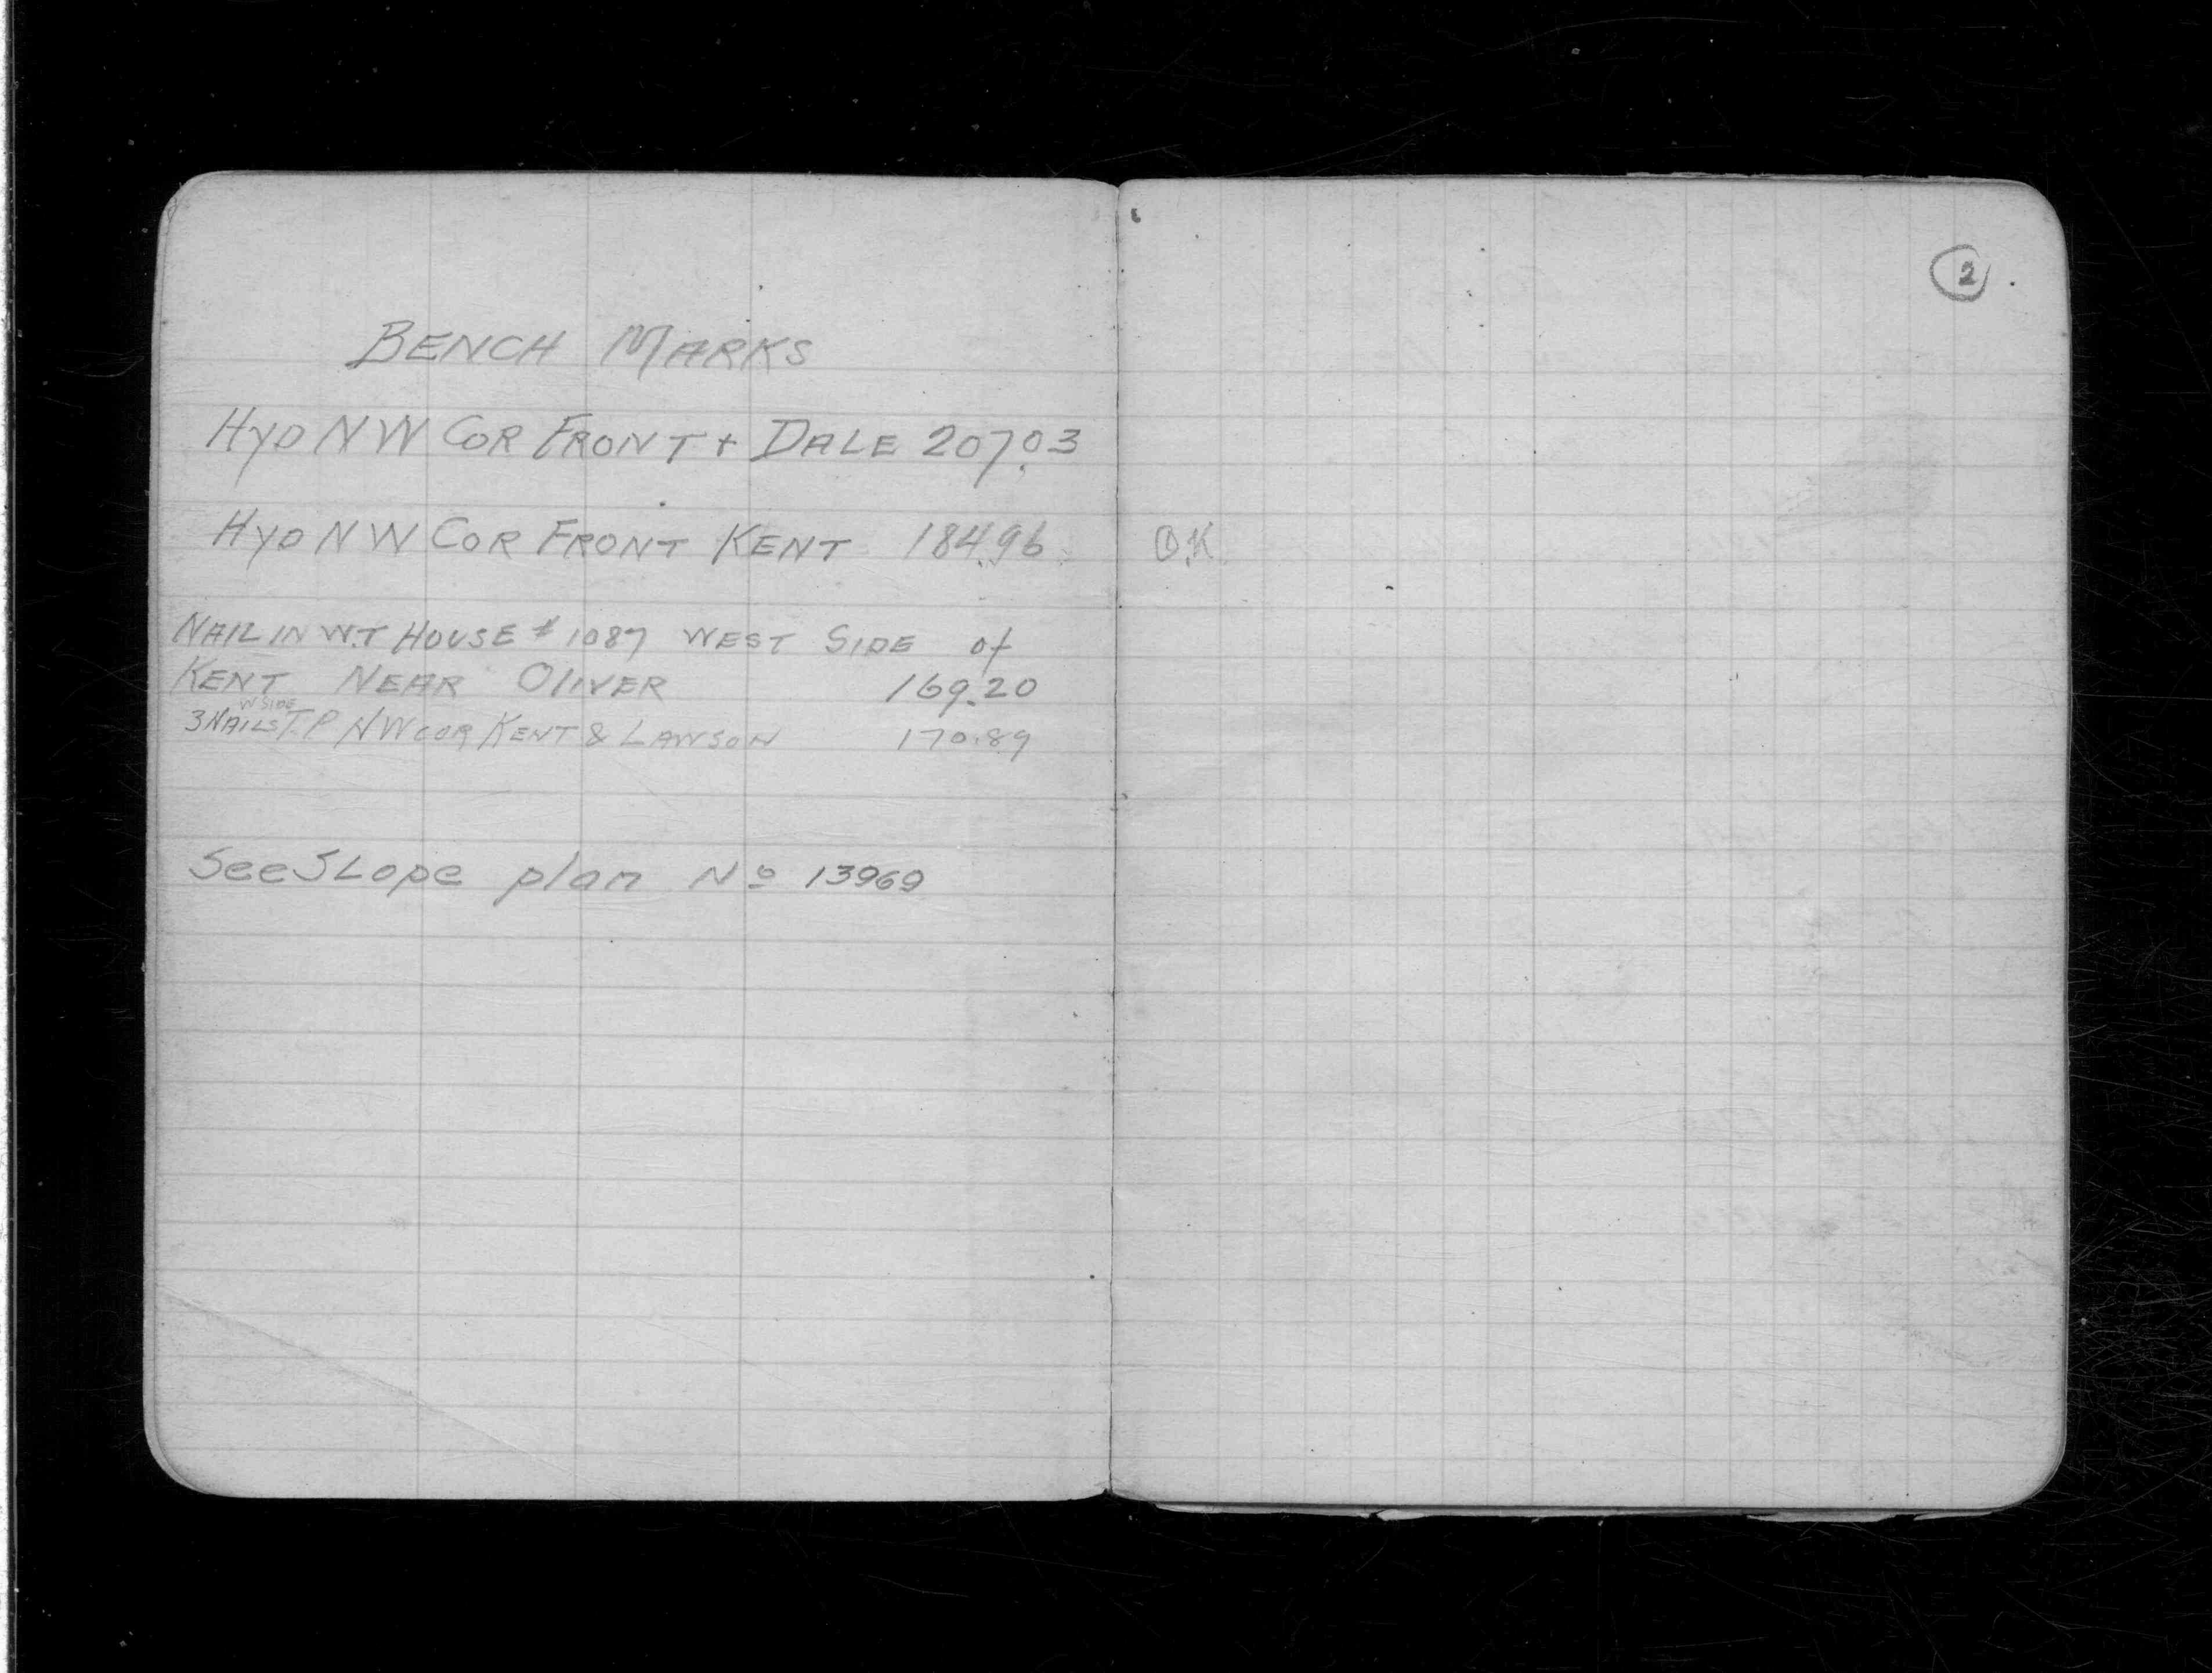 BENCH MARKS
HYD N W COR FRONT + DALE 207.03
HYD N W COR FRONT KENT 184.96
NAIL IN W.T HOUSE # 1087 WEST SIDE of
KENT NEAR OLIVER 169.20
W SIDE
3 NAILS T.P N W COR KENT & LAWSON 170.89
See SLope plan No 13969
2
O.K